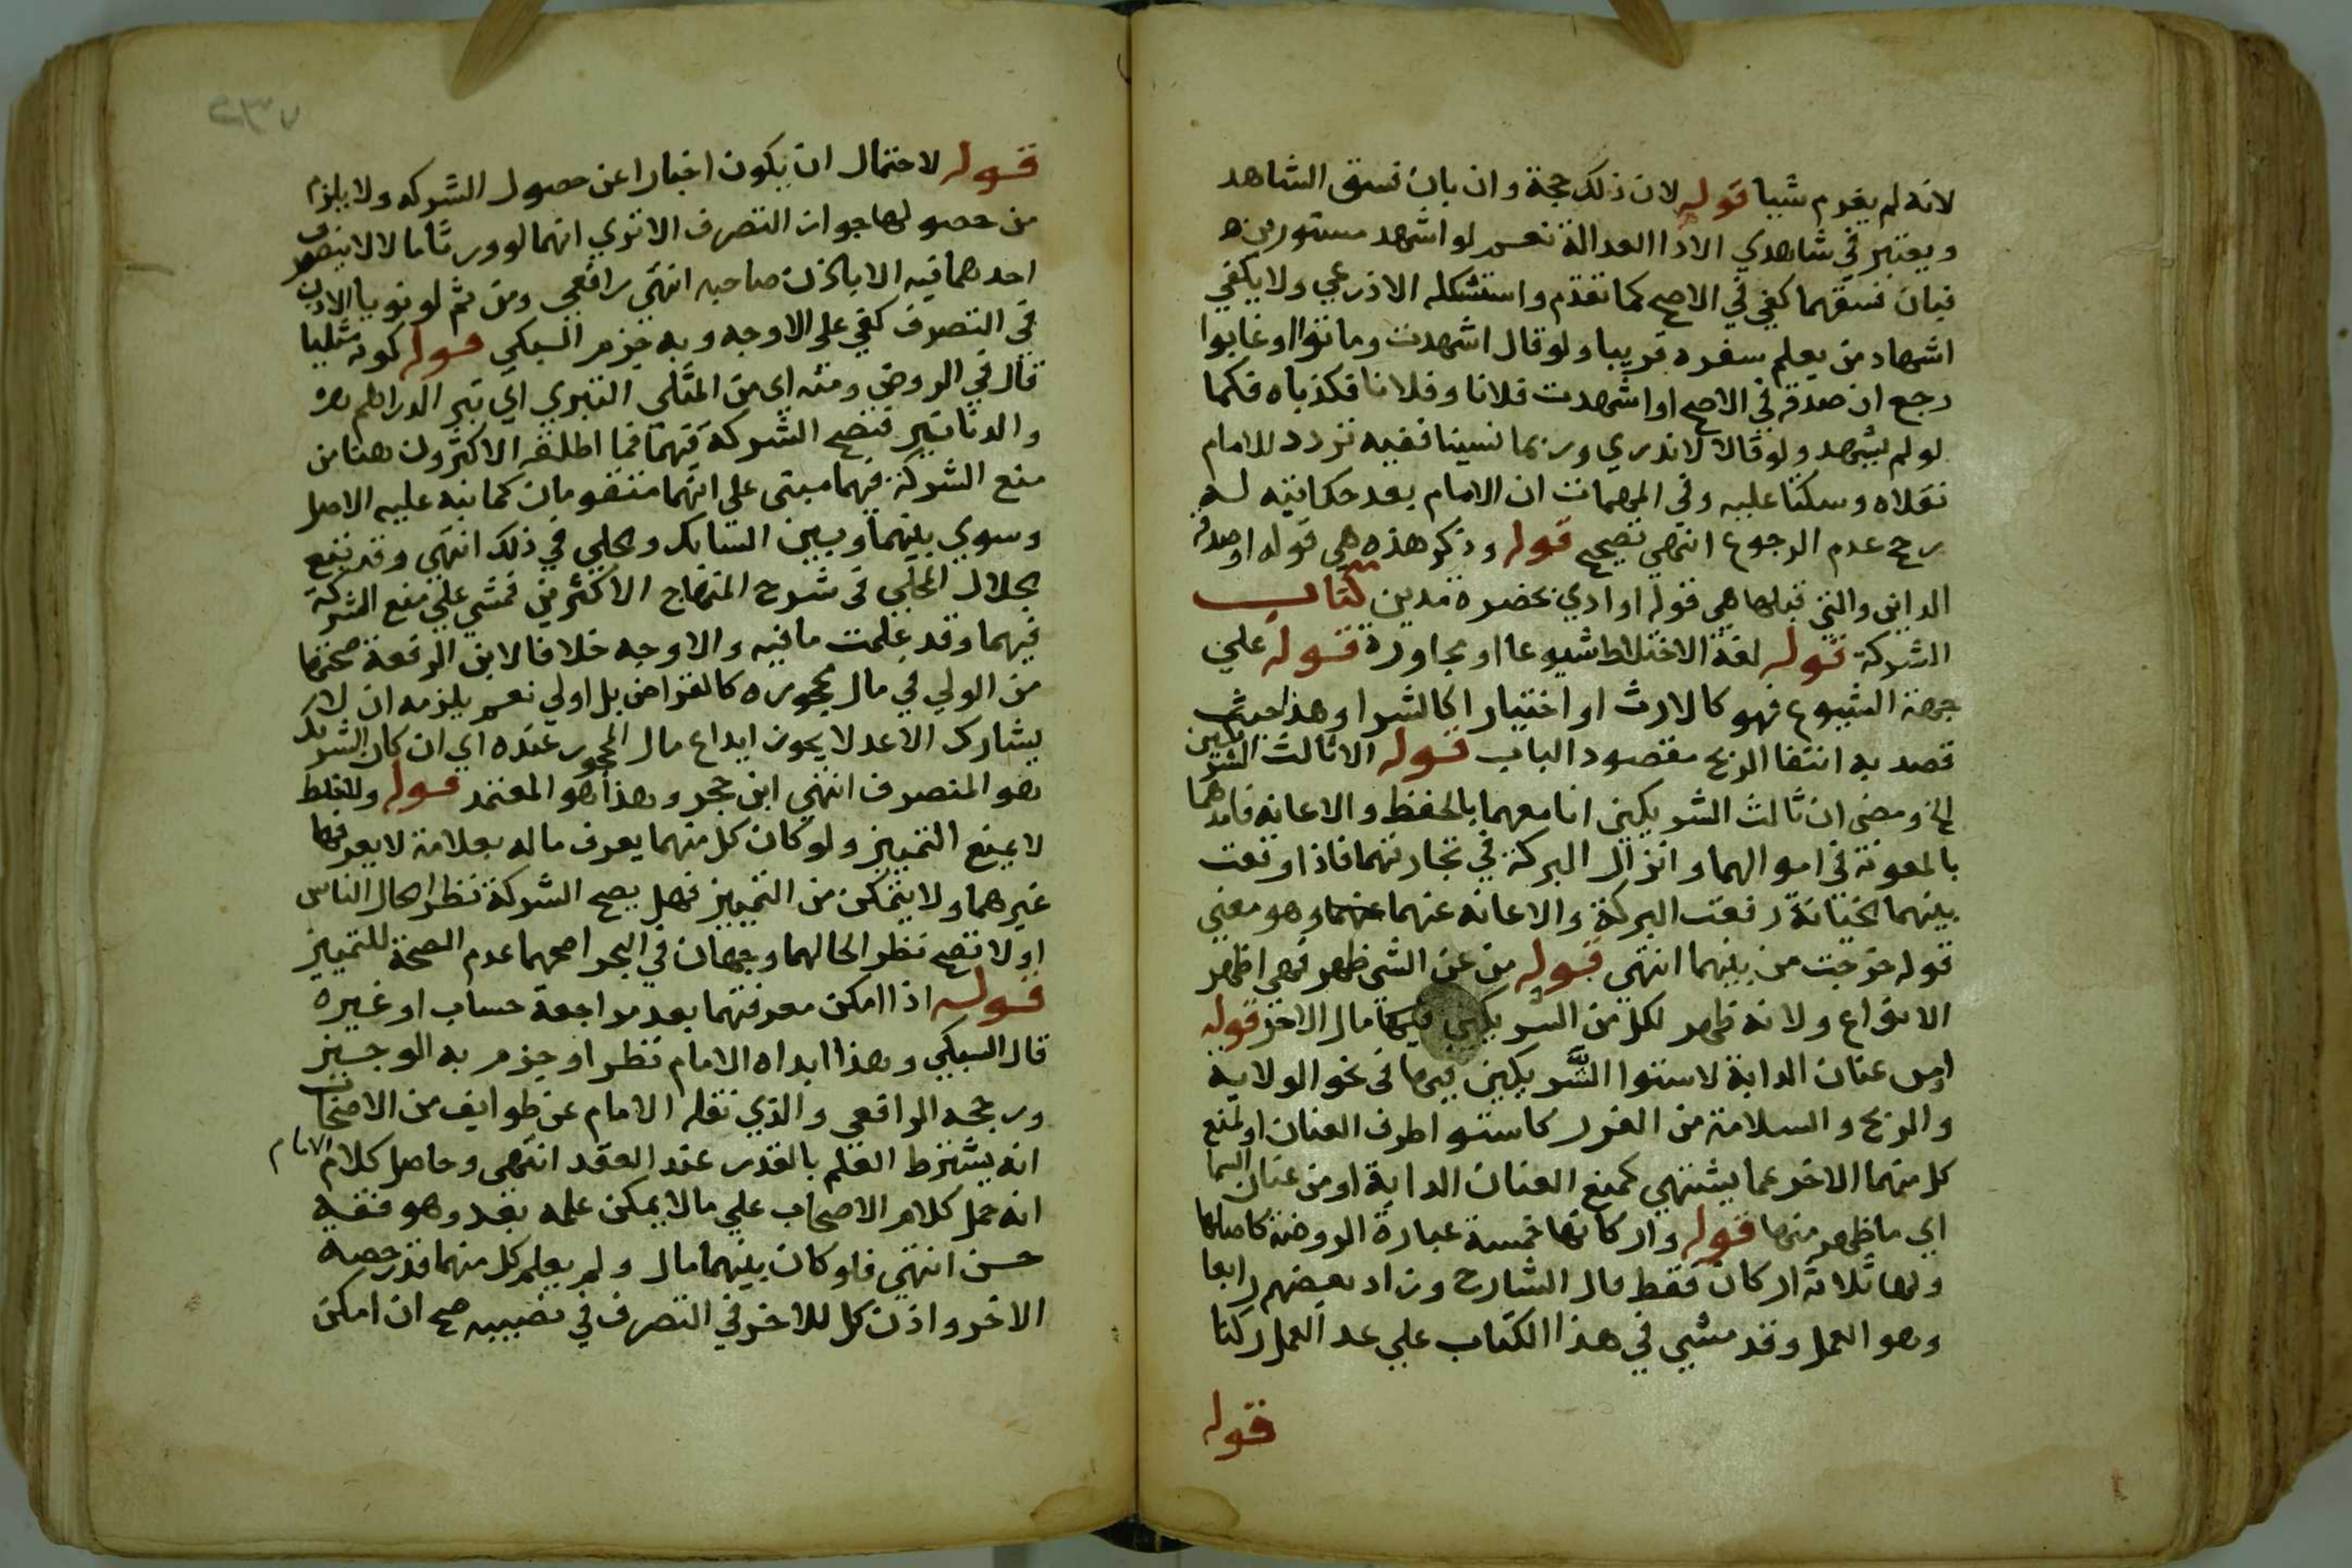 لانه لم يغرم شيا قوله لان ذلك حجة وان بان فسق الشاهد
ويعتبر في شاهدي الادا العدالة نعم لو اشهد مستورين
فبان فسقهما كفى في الاصح كما تقدم واستشكله الاذرعي ولا يكفي
اشهاد من يعلم سفره قريبا ولو قال اشهدت وماتوا او غابوا
رجع ان صدقه في الاصح او اشهدت فلانا وفلانا فكذباه فكما
لو لم يشهد ولو قالا لا ندري وربما نسينا ففيه تردد للامام
نقلاه وسكتا عليه وفي المهمات ان الامام بعد حكايته له
رجح عدم الرجوع انتهى تصحيح قوله وذكر هذه هي قوله او صدقه
الداين والتي قبلها هي قوله او ادي بحضرة مدين كتاب
الشركة قوله لغة الاختلاط شيوعا او مجاورة قوله علي
جهة الشيوع فهو كالارث او اختيارا كالشرا وهذا حيث
قصد به ابتغا الربح مقصود الباب قوله الا ثالث الشريكين
الخ ومضى ان ثالث الشريكين انا معهما بالحفظ والاعانة فامدهما
بالمعونة في اموالهما وانزال البركة في تجارتهما فاذا وقعت
بينهما الخيانة رفعت البركة والاعانة عنهما عنهما وهو معني
قوله خرجت من بينهما انتهى قوله من عن الشي ظهر فهي اظهر
الانواع ولانه ظهر لكل من الشريكين مال الاخر قوله
او من عنان الدابة لاستوا الشريكين فيها في نحو الولاية
والربح والسلامة من الغرر كاستوا طرف العنان او لمنع
كل منهما الاخر عما يشتهي كمنع العنان الدابة او من عنان السما
اي ما ظهر منها قوله واركانها خمسة عبارة الروضة كاصلها
ولها ثلاثة اركان فقط قال الشارح وزاد بعضهم رابعا
وهو العمل وقد مشي في هذا الكتاب علي عد العمل ركنا
قوله
٢٣٧
قوله لاحتمال ان يكون اخبارا عن حصول الشركه ولا يلزم
من حصولها جواز التصرف الا تري انهما لو ورثا مالا لا يتصرف
احدهما فيه الا باذن صاحبه انتهى رافعي ومن ثم لو نويا الاذن
في التصرف كفي علي الاوجه وبه جزم السبكي قوله كونه مثليا
قال في الروض ومنه اي من المثلي التبري اي تبر الدراهم
والدنانير فتصح الشركة فيهما فما اطلقه الاكثرون هنا من
منع الشركة فيهما مبني علي انهما متقومان كما نبه عليه الاصل
وسوي بينهما وبين السبايك والحلي في ذلك انتهى وقد تبع
الجلال المحلي في شرح المنهاج الاكثرين فمشي علي منع الشركة
فيهما وقد علمت ما فيه والاوجه خلافا لابن الرفعة صحتها
من الولي في مال محجوره كالقراض بل اولي نعم يلزمه ان لا
يشارك الا عدلا يجوز ايداع مال المحجور عنده اي ان كان الشريك
هو المتصرف انتهى ابن حجر وهذا هو المعتمد قوله والخلط
لا يمنع التمييز ولو كان كل منهما يعرف ماله بعلامة لا يعرفها
غيرهما ولا يتمكن من التمييز فهل يصح الشركة نظرا لحال الناس
او لا تصح نظرا لحالهما وجهان في البحر اصحهما عدم الصحة للتمييز
قوله اذا امكن معرفتهما بعد مراجعة حساب او غيره
قال السبكي وهذا ابداه الامام نظرا وجزم به الوجيز
ورجحه الرافعي والذي نقله الامام عن طوايف من الاصحاب
انه يشترط العلم بالقدر عند العقد انتهى وحاصل كلام الامام
انه حمل كلام الاصحاب علي ما لا يمكن علمه بعد وهو فقيه
حسن انتهى فلو كان بينهما مال ولم يعلم كل منهما قدر حصة
الاخر واذن كل للاخر في التصرف في نصيبه صح ان امكن